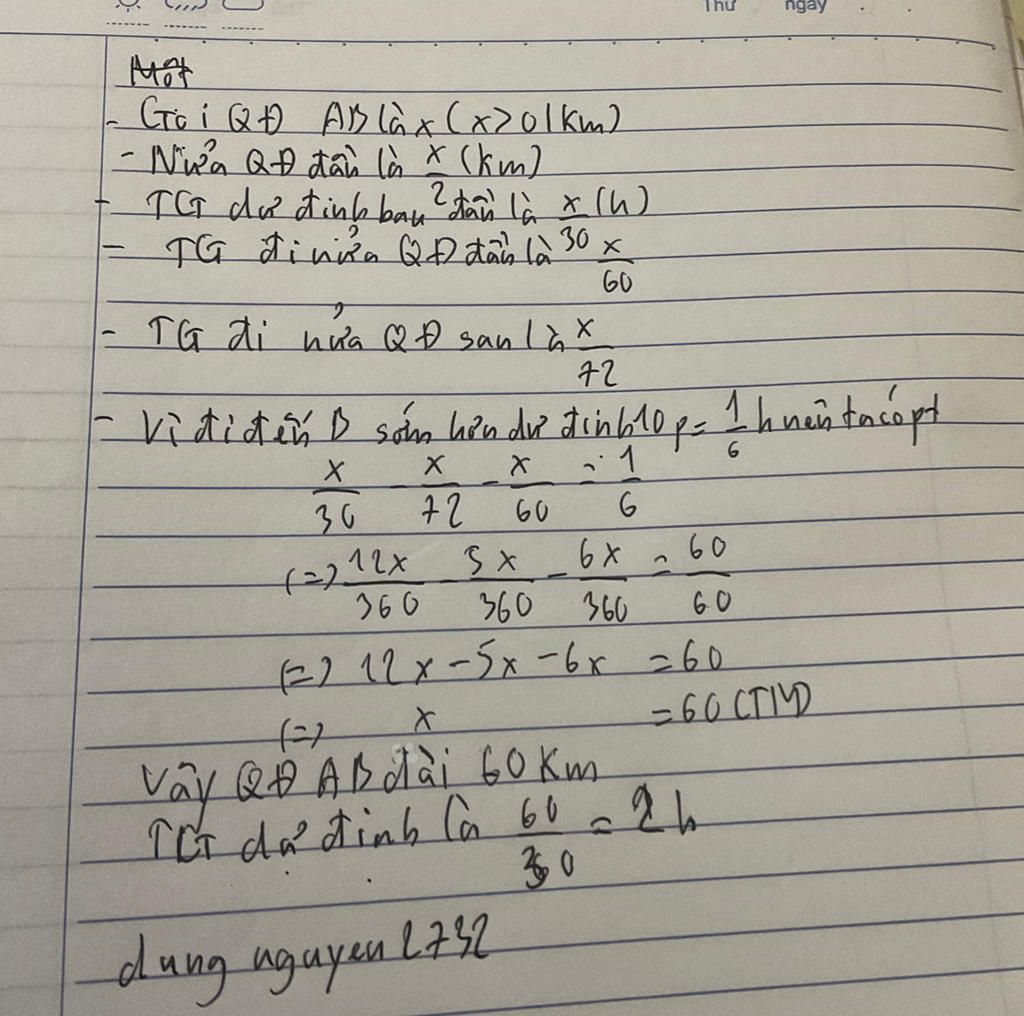 Thứ ngày
Một
- Gọi QĐ AB là x (x>0/km)
- Nửa QĐ đầu là x/2 (km)
- TG dự định ban đầu là x/30 (h)
- TG đi nửa QĐ đầu là x/60
- TG đi nửa QĐ sau là x/72
- Vì đi đến B sớm hơn dự định 10p = 1/6 h nên ta có pt
x/30 - x/72 - x/60 = 1/6
(=) 12x/360 - 5x/360 - 6x/360 = 60/60
(=) 12x - 5x - 6x = 60
(=) x = 60 (TM)
Vậy QĐ AB dài 60 Km
TG dự định là 60/30 = 2h
dung nguyen 2732